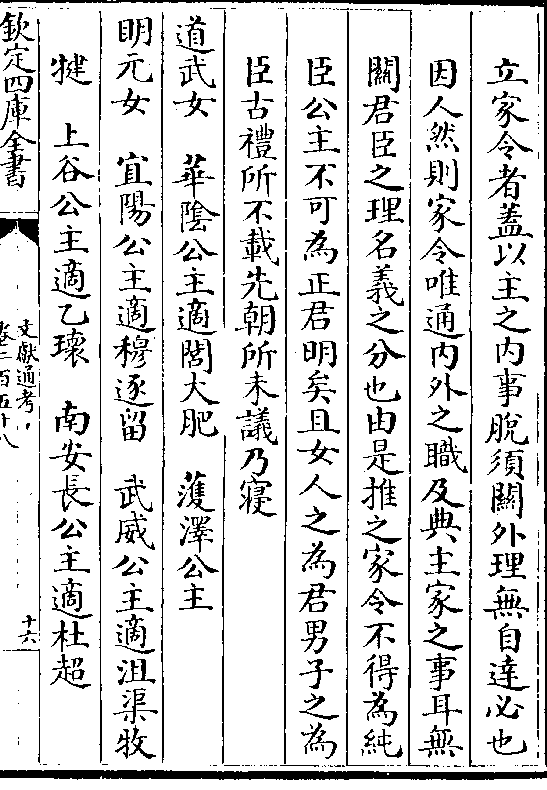 立家令者蓋以主之内事脫須關外理無自達必也
因人然則家令唯通内外之職及典主家之事耳無
關君臣之理名義之分也由是推之家令不得為純
臣公主不可為正君明矣且女人之為君男子之為
臣古禮所不載先朝所未議乃寢
道武女　華隂公主適閭大肥　濩澤公主
明元女　宜陽公主適穆逐留　武威公主適沮渠牧
犍　上谷公主適乙瓌　南安長公主適杜超
欽定四庫全書
文獻通考
卷二百五十八
十六